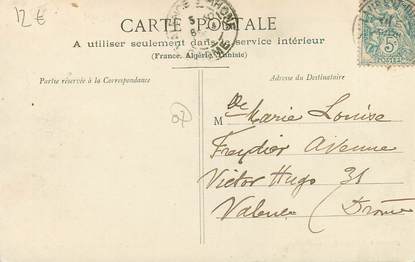 12€
CARTE POSTALE
A utiliser seulement dans le service intérieur
(France, Algérie, Tunisie)
Partie réservée à la Correspondance
Adresse du Destinataire
02
M de Marie Louise
Freydier Avenue
Victor Hugo 31
Valence (Drôme
5
POSTES